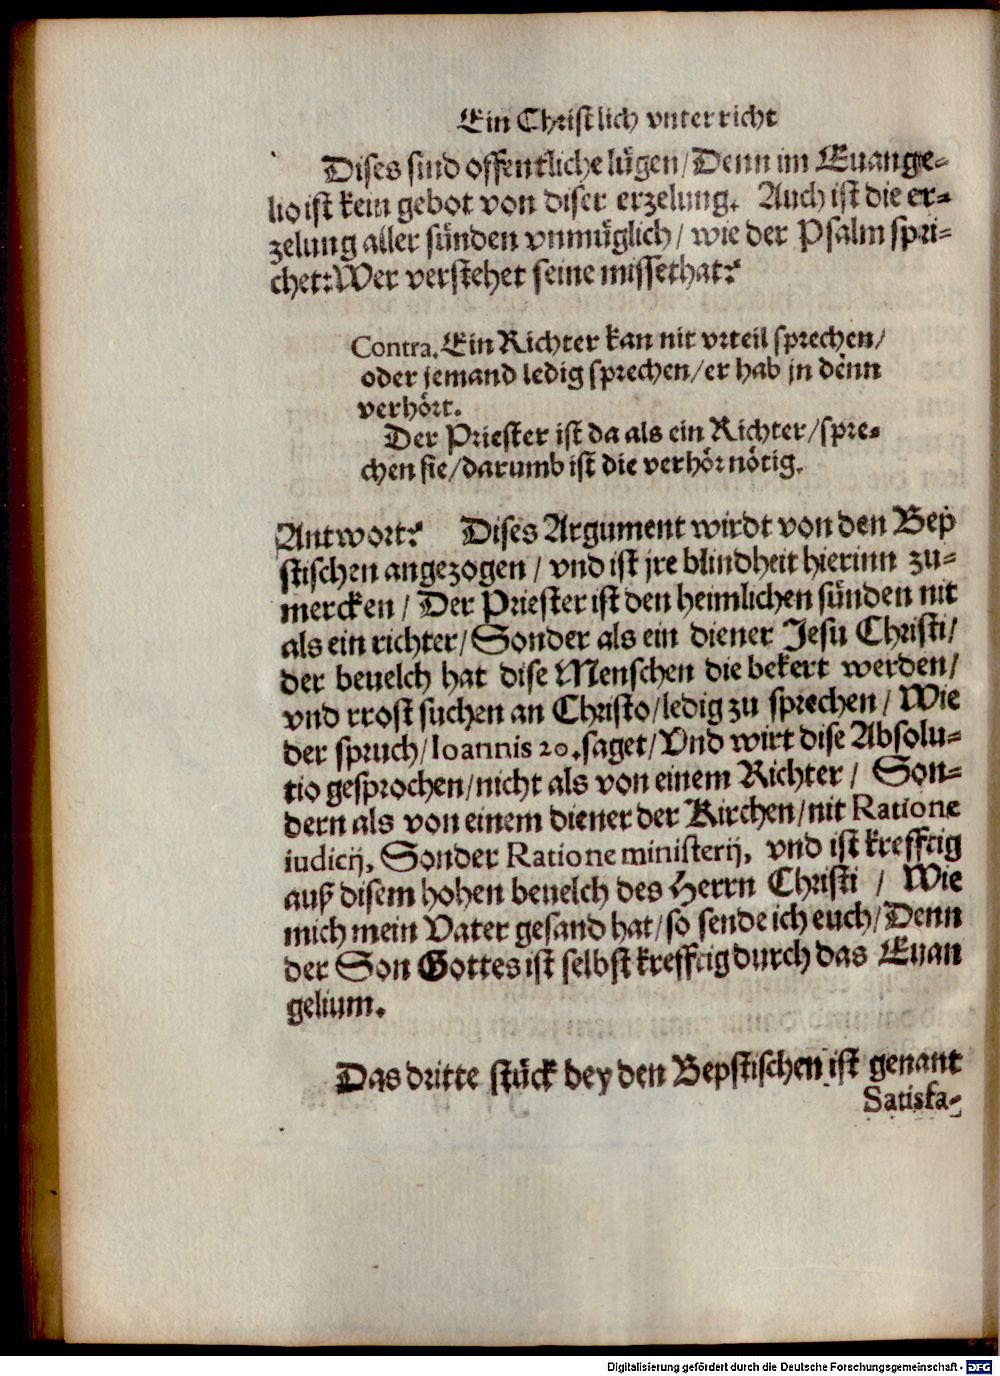 Ein Christlich vnterricht
Dises sind offentliche lügen/Denn im Euange-
lio ist kein gebot von diser erzelung. Auch ist die er-
zelung aller sünden vnmüglich/ wie der Psalm spri-
chet:Wer verstehet seine missethat?
Contra. Ein Richter kan nit vrteil sprechen/
oder jemand ledig sprechen/er hab jn denn
verhört.
Der Priester ist da als ein Richter/spre-
chen sie/darumb ist die verhör nötig.
Antwort? Dises Argument wirdt von den Bep
stischen angezogen/ vnd ist jre blindheit hierinn zu-
mercken/ Der Priester ist den heimlichen sünden nit
als ein richter/Sonder als ein diener Jesu Christi/
der beuelch hat dise Menschen die bekert werden/
vnd trost suchen an Christo/ledig zu sprechen/ Wie
der spruch/Ioannis 20. saget/Vnd wirt dise Absolu-
tio gesprochen/nicht als von einem Richter/ Son-
dern als von einem diener der Kirchen/nit Ratione
iudicij, Sonder Ratione ministerij, vnd ist krefftig
auß disem hohen beuelch des Herrn Christi / Wie
mich mein Vater gesand hat/so sende ich euch/Denn
der Son Gottes ist selbst krefftig durch das Euan
gelium.
Das dritte stück bey den Bepstischen ist genant
Satisfa-
Digitalisierung gefördert durch die Deutsche Forschungsgemeinschaft - DFG